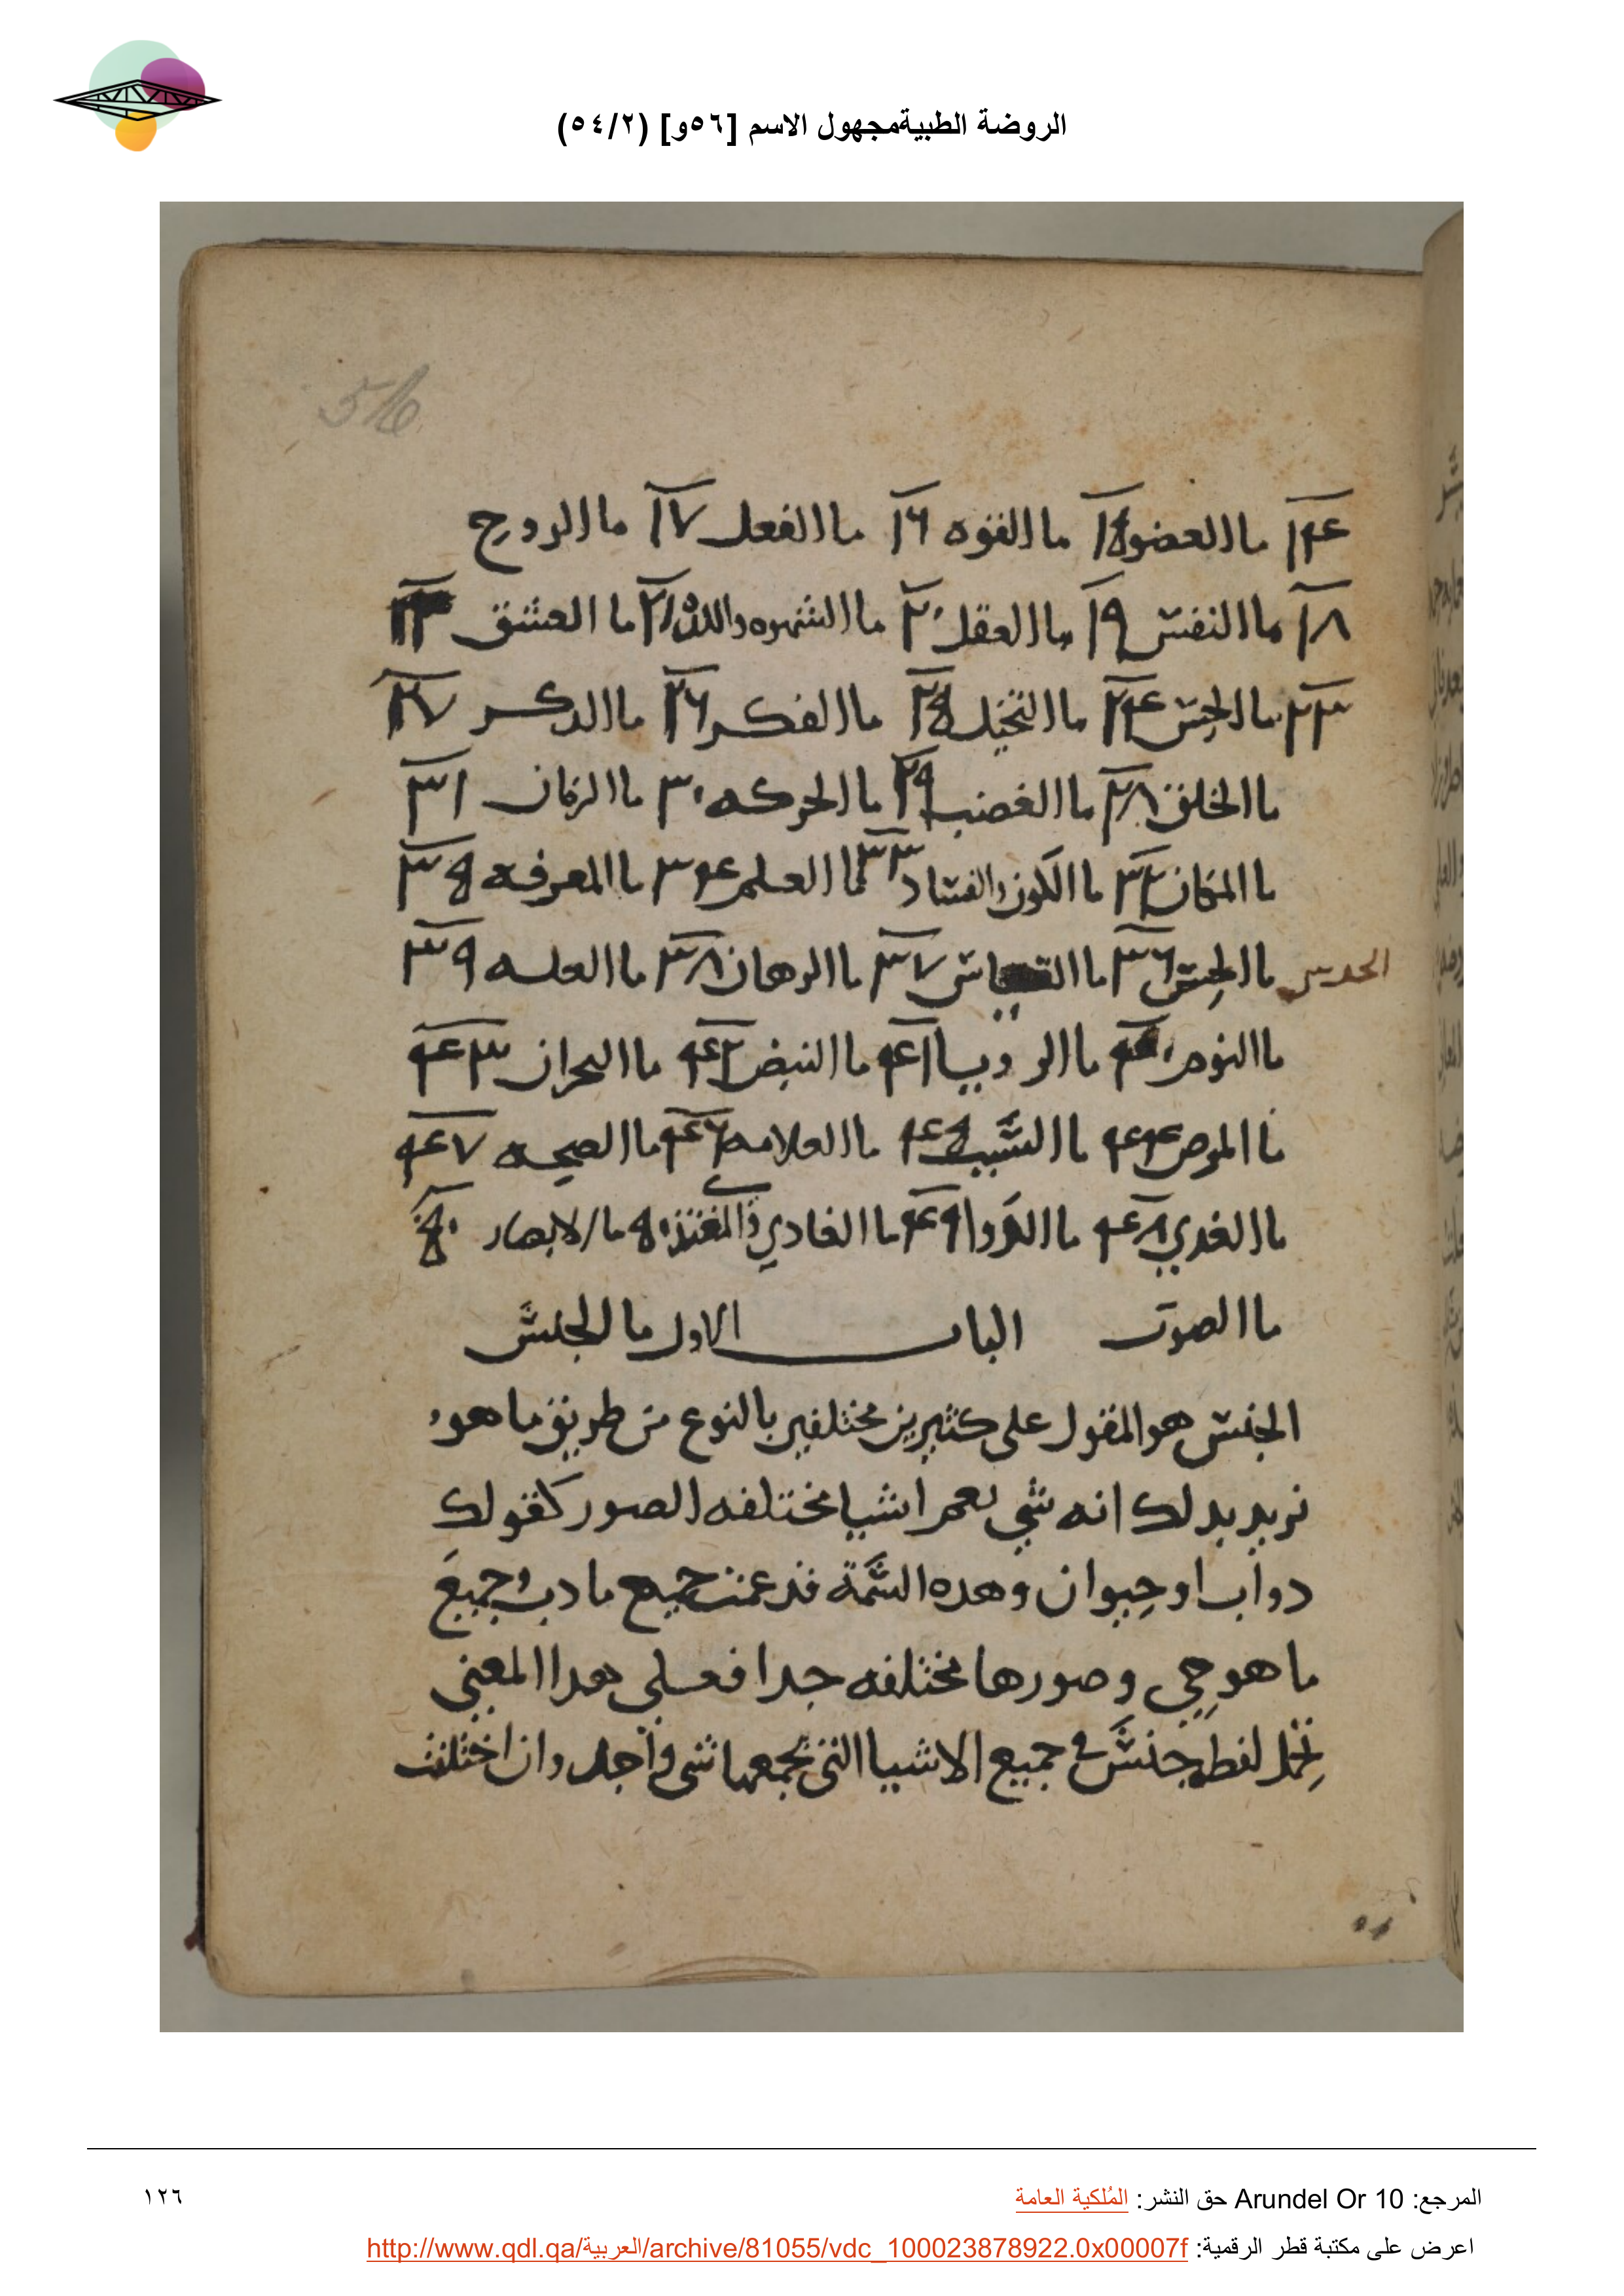 الروضة الطبيةمجهول الاسم [٥٦و] (٥٤/٢)
56
١٤ ما العضو ١٥ ما القوه ١٦ ما الفعل ١٧ ما الروح
١٨ ما النفس ١٩ ما العقل ٢٠ ما الشهوه واللذه ٢١ ما العشق ٢٢
٢٣ ما الحس ٢٤ ما التخيل ٢٥ ما الفكر ٢٦ ما الدكر ٢٧
ما الخلق ٢٨ ما الغضب ٢٩ ما الحركه ٣٠ ما الزمان ٣١
ما المكان ٣٢ ما الكون والفساد ٣٣ ما العلم ٣٤ ما المعرفه ٣٥
الحدس
ما الحس ٣٦ ما القياس ٣٧ ما البرهان ٣٨ ما العله ٣٩
ما النوم ٤٠ ما الرويا ٤١ ما النبض ٤٢ ما البحران ٤٣
ما المرض ٤٤ ما السبب ٤٥ ما العلامه ٤٦ ما الصحه ٤٧
ما الغدي ٤٨ ما الدوا ٤٩ ما الغادي والمغتذي ٥٠ ما الابصار ٥٠
ما الصوت الباب الاول ما الجنس
الجنس هو المقول على كثيرين مختلفين بالنوع من طريق ما هو
نريد بدلك انه شي يعم اشيا مختلفه الصور كقولك
دواب او حيوان وهده السمة قد عمت جميع ما دب وجميع
ما هو حي وصورها مختلفه جدا فعلى هدا المعنى
تحمل لفظه جنس في جميع الاشيا التي يجمعها شي واحد وان اختلفت
المرجع: Arundel Or 10 حق النشر: المُلكية العامة
١٢٦
اعرض على مكتبة قطر الرقمية: http://www.qdl.qa/العربية/archive/81055/vdc_100023878922.0x00007f